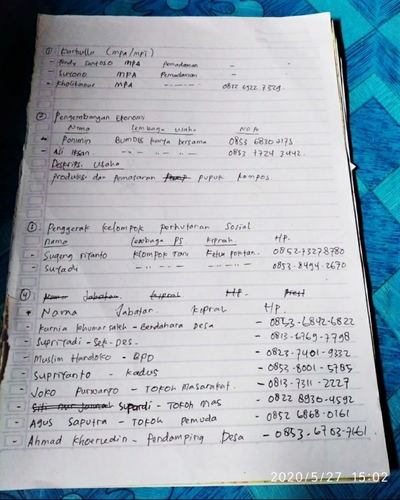 ① Karhutla (MPA/MPI)
- Pendi Santoso MPA Pemadaman -
- Sursono MPA Pemadaman -
- Kholikanur MPA -- -- -- 0822 6922 7329.
② Pengembangan Ekonomi
Nama Lembaga usaha No Hp
- Ponimin BUMDES karya bersama 0853 6830 0175
- Ali Iksan. -- -- -- 0853 7724 3442.
Deskripsi usaha
produksi dan pemasaran pupuk kompos.
③ Penggerak kelompok perhutanan Sosial
Nama Lembaga PS kiprah HP.
- Sugeng riyanto kelompok Tani Ketua poktan. 0852-73278780
- Suyadi -- -- -- 0853-8494-2670
④ Nama Jabatan kiprah HP
+ Nama Jabatan kiprah HP.
- Kurnia khumar saleh - Bendahara Desa - 0853-6842-6822
- Supriyadi - Sek-Des. - 0813-6769-7798
- Muslim Handoko - BPD - 0823-7401-9332
- Supriyanto - kadus - 0853-8001-5785
- Joko Purwanto - Tokoh Masarakat. - 0813-7311-2227
- Siti nur Supardi - Tokoh Mas - 0822 8930-4592
- Agus Saputra - Tokoh Pemuda - 0852 6868 0161
- Ahmad Khoerudin - Pendamping Desa - 0853-6703-7661.
2020/5/27 15:02